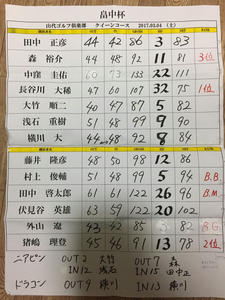 畠中杯
山代ゴルフ倶楽部 クイーンコース 2017.03.04 (土)
田中 正彦 44 42 86 3 83
森 裕介 44 48 92 11 81 3位
中窪 圭佑 60 73 133 22 111
長谷川 大稀 47 60 107 32 75 1位
大竹 順二 40 47 87 5 82
浅石 重樹 51 47 98 9 89
横川 大 44 48 92 8 84
藤井 隆彦 48 50 98 12 86
村上 俊介 48 51 99 5 94 B.B.
田中 啓太郎 61 61 122 26 96 B.M.
伏見谷 英雄 63 59 122 20 102
外山 遼 43 42 85 3 82 B.G.
猪嶋 理登 45 46 91 13 78 2位
ニアピン OUT2 大竹 OUT7 森
IN12 浅石 IN15 田中正
ドラコン OUT9 横川 IN13 横川